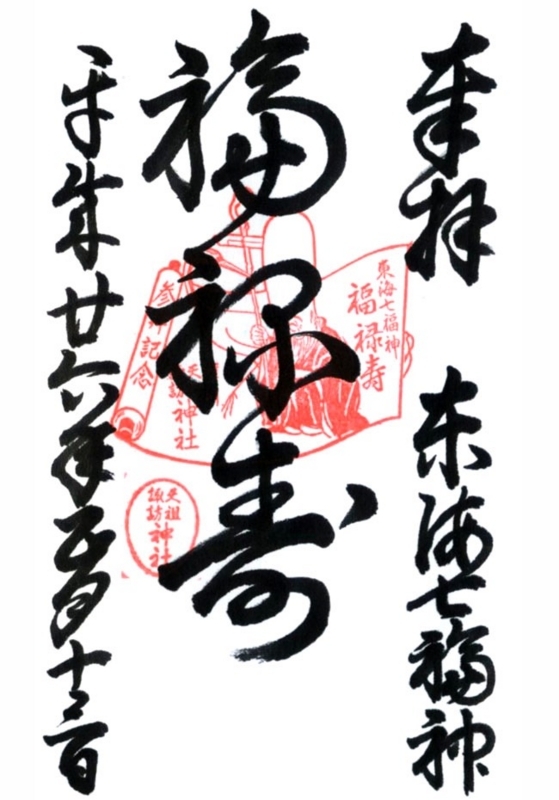 奉拝 东海七福神
福禄寿
平成廿六年正月十二日
東海七福神
福禄寿
天祖
諏訪神社
記念
天祖
諏訪神社